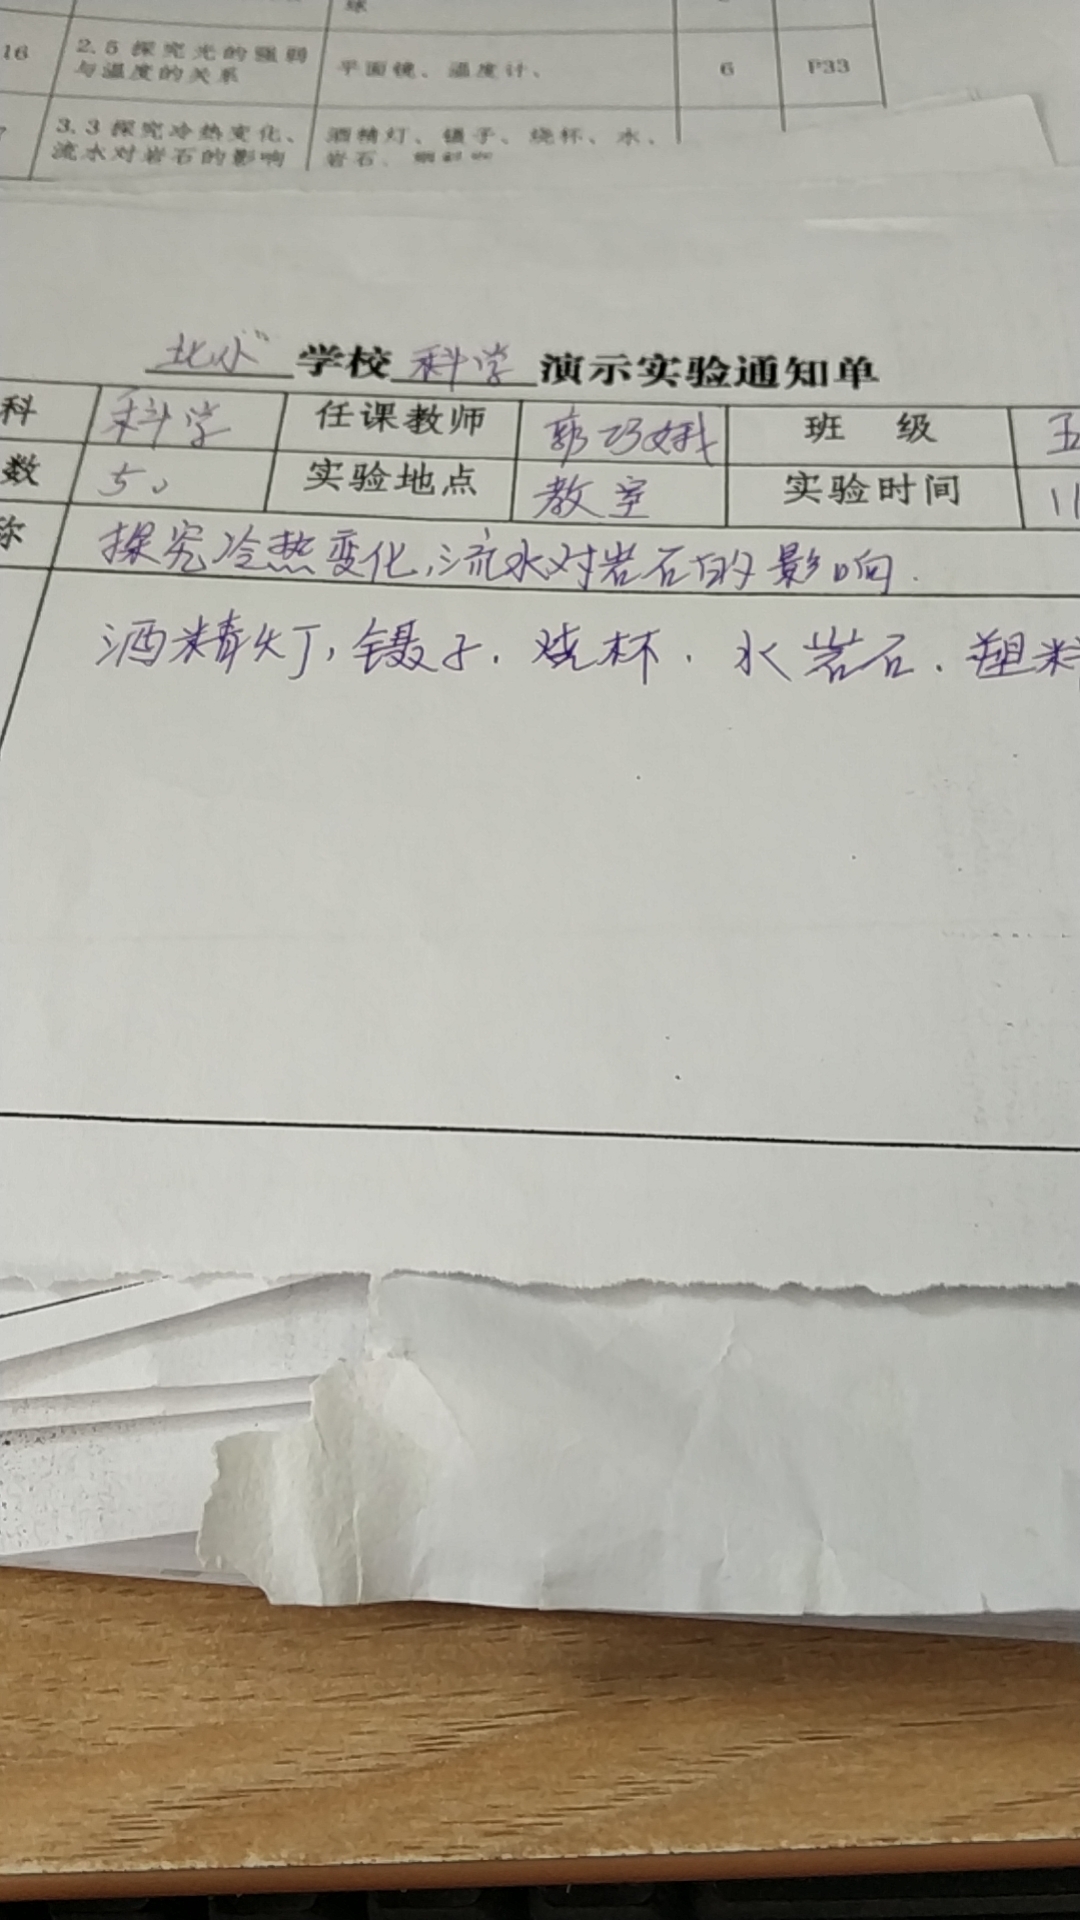 球
16 2.5 探究光的强弱 平面镜、温度计、 6 P33
与温度的关系
3.3 探究冷热变化、 酒精灯、镊子、烧杯、水、
流水对岩石的影响 岩石、
北小 学校 科学 演示实验通知单
科 科学 任课教师 郭巧娥 班 级 五
数 50 实验地点 教室 实验时间 11
称 探究冷热变化,流水对岩石的影响.
酒精灯,镊子.烧杯.水岩石.塑料